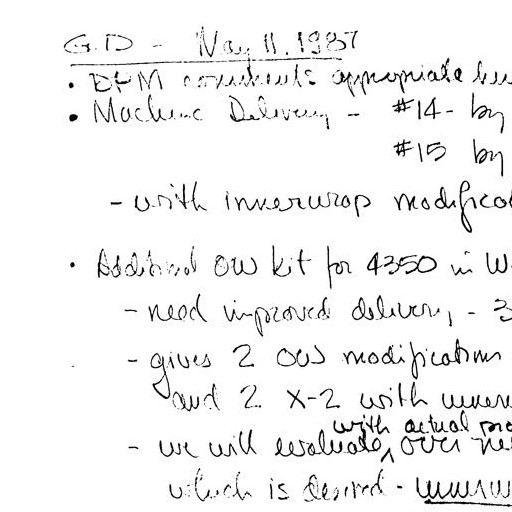 G.D - May 11, 1987
• DFM comments appropriate
• Machine Delivery - #14- by
#15 by
- with innerwrap
• Additional OW kit for 4350 in W
- need improved delivery, - 3
- gives 2 OWs modifications
and 2 X-2 with
with actual
- we will evaluate, over
which is desired -